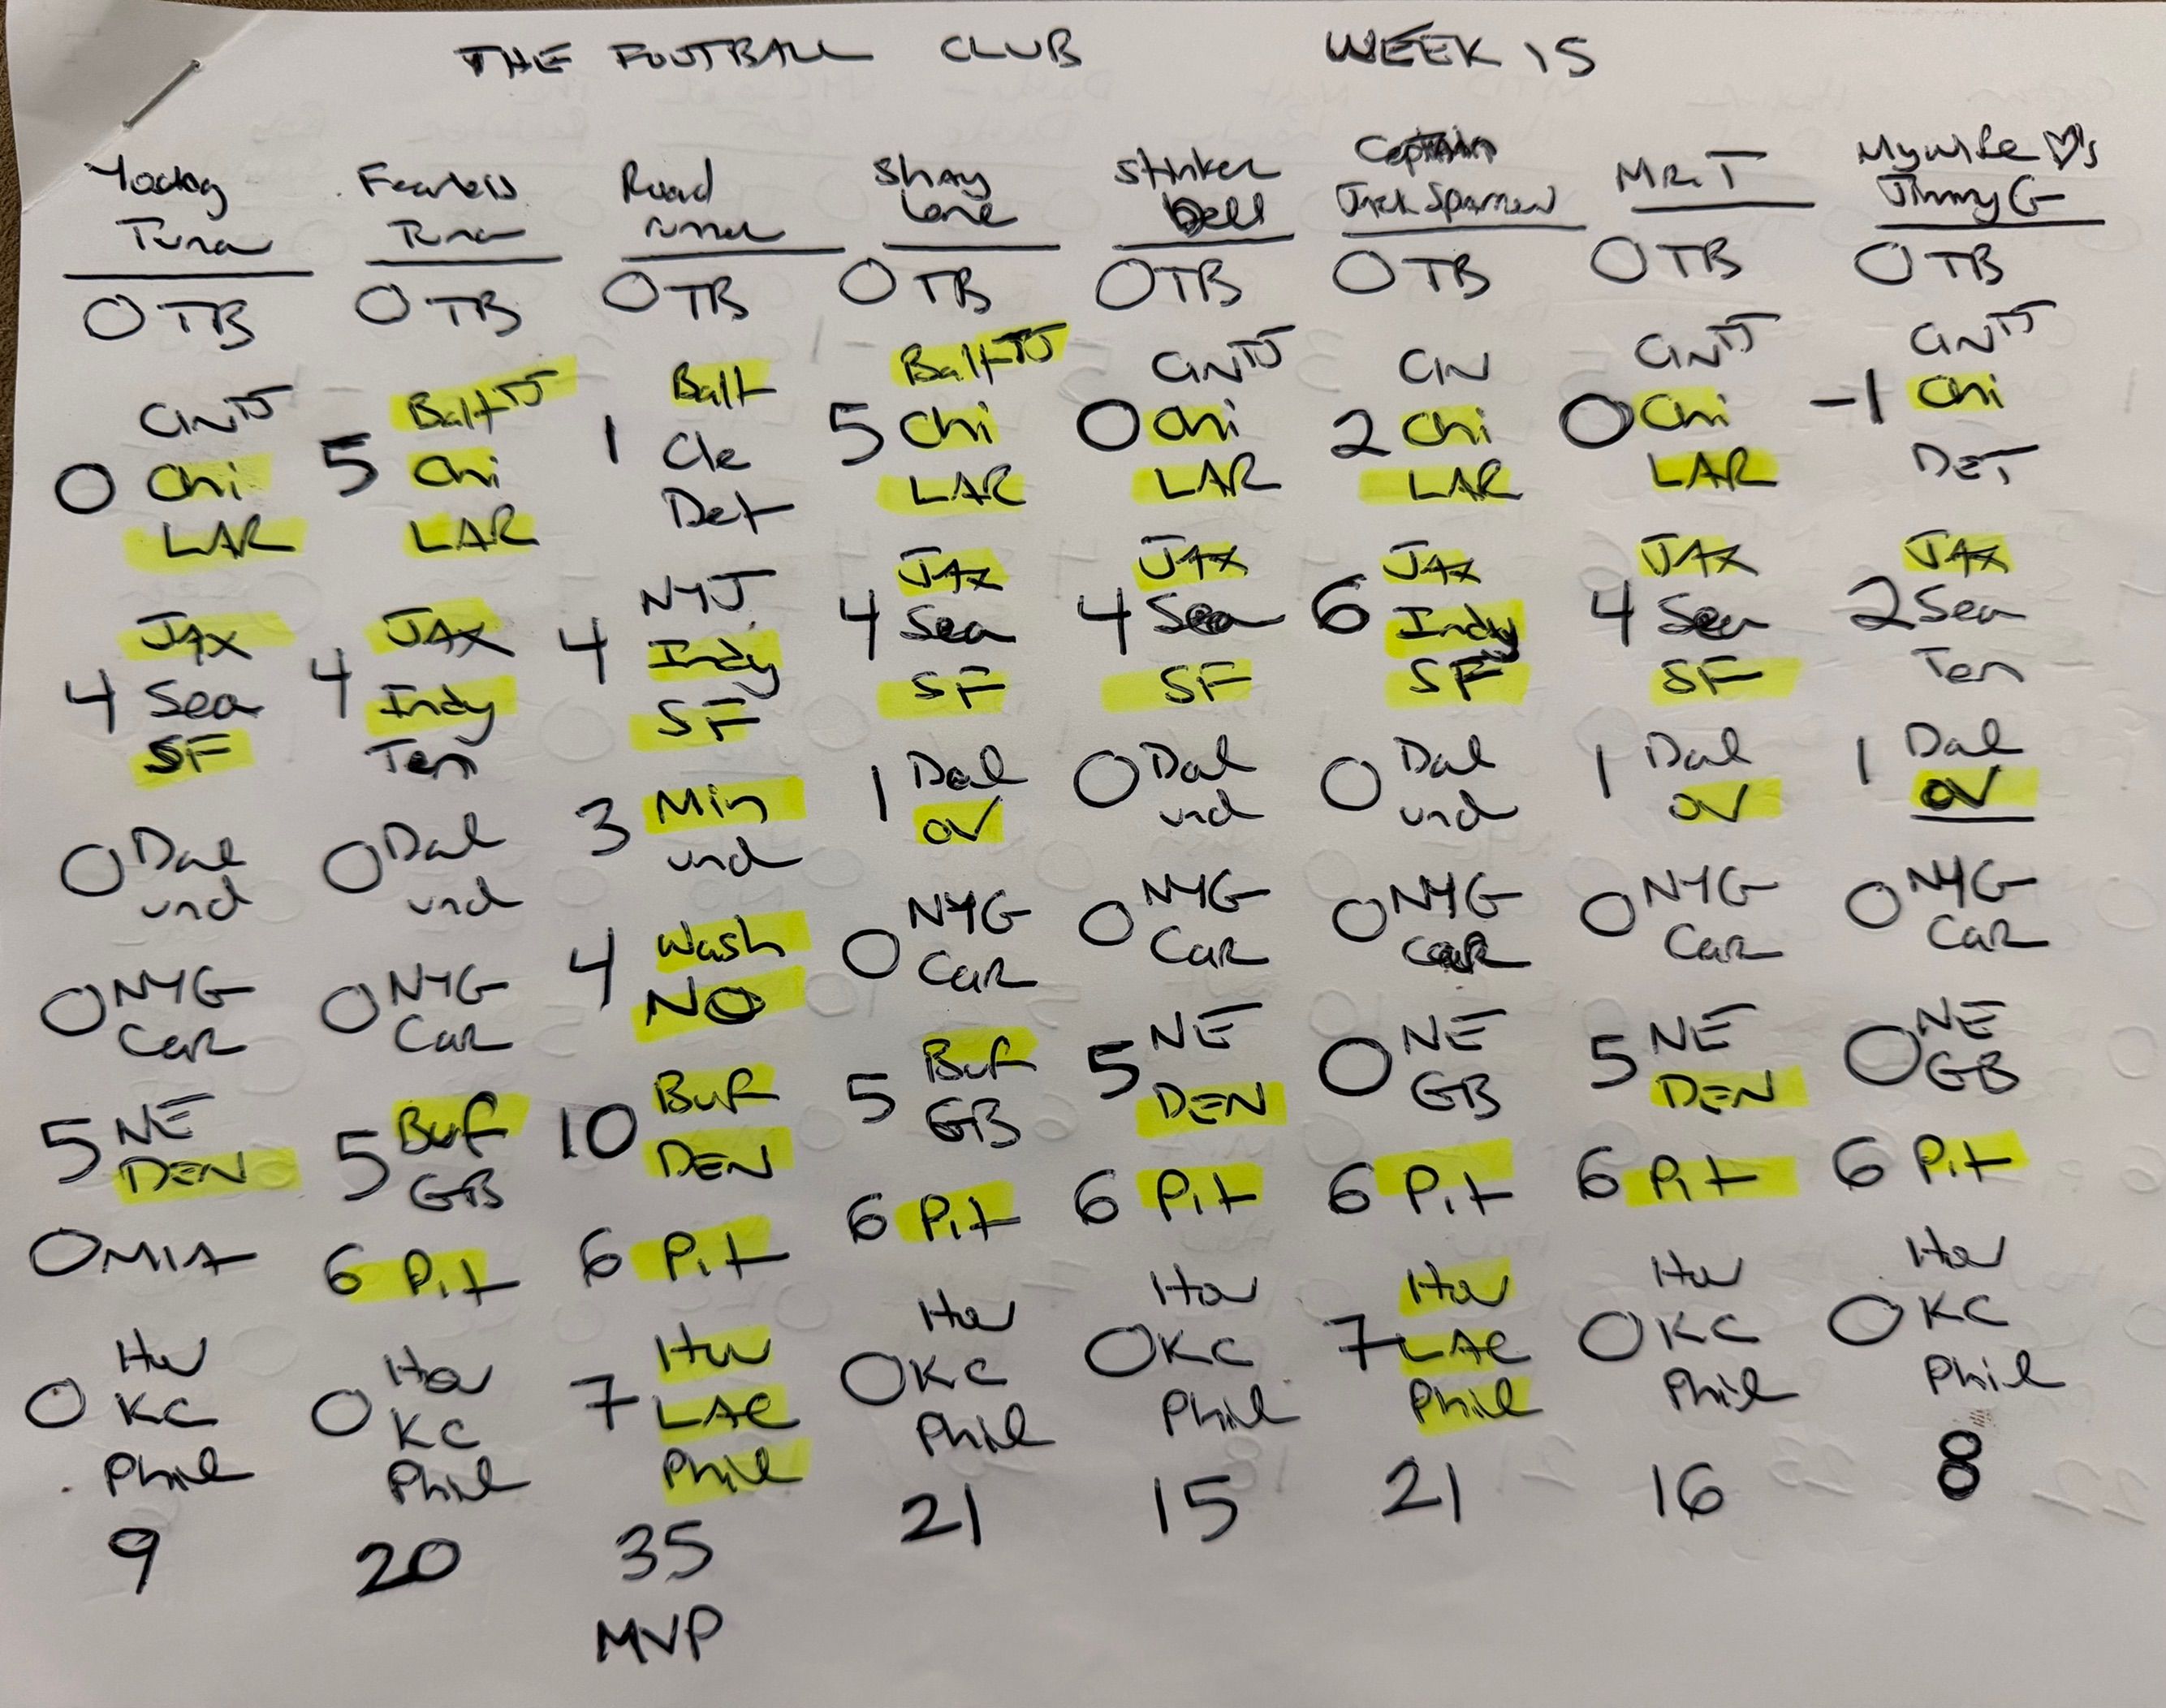 THE FOOTBALL CLUB WEEK 15
Yodog Tuna
0 TB
CIN TJ
0 Chi
LAR
JAX
4 Sea
SF
0 Dal
und
0 NYG
Car
5 NE
DEN
0 MIA
Hou
0 KC
Phil
9
Fearless Tuna
0 TB
Balt TJ
5 Chi
LAR
JAX
4 Indy
Ten
0 Dal
und
0 NYG
Car
5 Buf
GB
6 Pit
Hou
0 KC
Phil
20
Road runner
0 TB
Balt
1 Cle
Det
NYJ
4 Indy
SF
3 Min
und
4 Wash
NO
10 Buf
DEN
6 Pit
Hou
7 LAC
Phil
35
MVP
Shay Lane
0 TB
Balt TJ
5 Chi
LAR
JAX
4 Sea
SF
1 Dal
OV
0 NYG
Car
5 Buf
GB
6 Pit
Hou
0 KC
Phil
21
Stinker Bell
0 TB
CIN TJ
0 Chi
LAR
JAX
4 Sea
SF
0 Dal
und
0 NYG
Car
5 NE
DEN
6 Pit
Hou
0 KC
Phil
15
Captain
Jack Sparrow
0 TB
CIN
2 Chi
LAR
JAX
6 Indy
SF
0 Dal
und
0 NYG
Car
0 NE
GB
6 Pit
Hou
7 LAC
Phil
21
MR. T
0 TB
CIN TJ
0 Chi
LAR
JAX
4 Sea
SF
1 Dal
OV
0 NYG
Car
5 NE
DEN
6 Pit
Hou
0 KC
Phil
16
My wife ♡'s
Jimmy G
0 TB
CIN TJ
-1 Chi
DET
JAX
2 Sea
Ten
1 Dal
OV
0 NYG
Car
0 NE
GB
6 Pit
Hou
0 KC
Phil
8